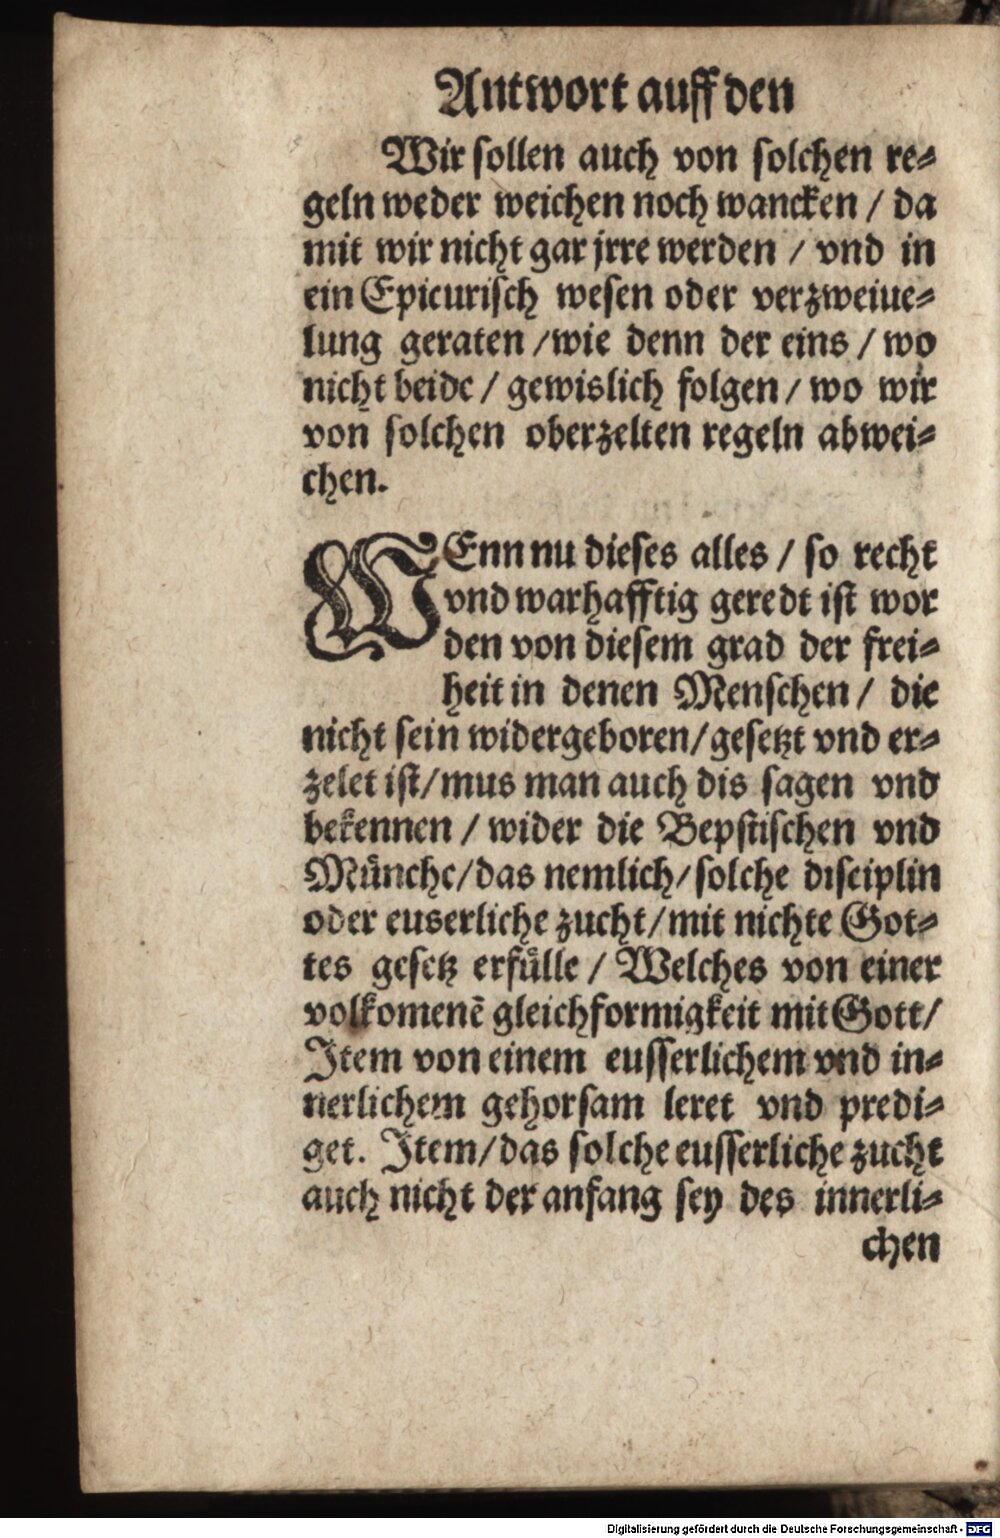 Antwort auff den
Wir sollen auch von solchen re⸗
geln weder weichen noch wancken / da
mit wir nicht gar jrre werden / vnd in
ein Epicurisch wesen oder verzweiue⸗
lung geraten /wie denn der eins / wo
nicht beide / gewislich folgen / wo wir
von solchen oberzelten regeln abwei⸗
chen.
WEnn nu dieses alles / so recht
vnd warhafftig geredt ist wor
den von diesem grad der frei⸗
heit in denen Menschen / die
nicht sein widergeboren/gesetzt vnd er⸗
zelet ist/mus man auch dis sagen vnd
bekennen / wider die Bepstischen vnd
Münche/das nemlich/solche disciplin
oder euserliche zucht/mit nichte Got⸗
tes gesetz erfülle / Welches von einer
volkomenē gleichformigkeit mit Gott/
Item von einem eusserlichem vnd in⸗
nerlichem gehorsam leret vnd predi⸗
get. Item/das solche eusserliche zucht
auch nicht der anfang sey des innerli⸗
chen
Digitalisierung gefördert durch die Deutsche Forschungsgemeinschaft - DFG